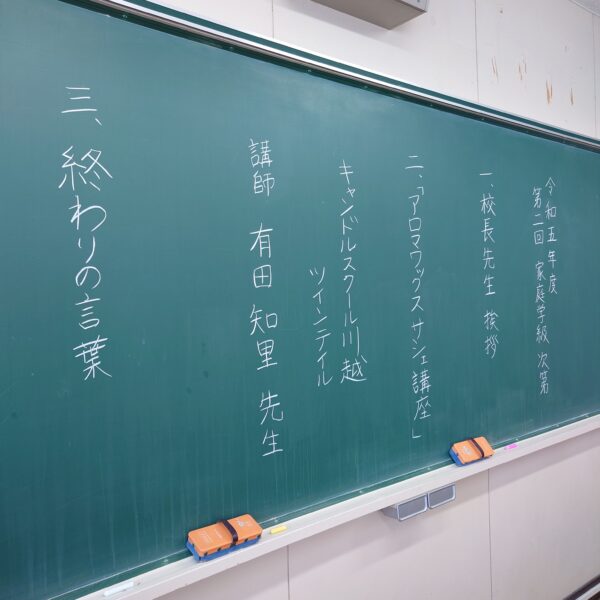 令和五年度
第二回 家庭学級 次第
一、校長先生 挨拶
二、「アロマワックスサシェ講座」
キャンドルスクール川越
ツインテイル
講師 有田 知里 先生
三、終わりの言葉